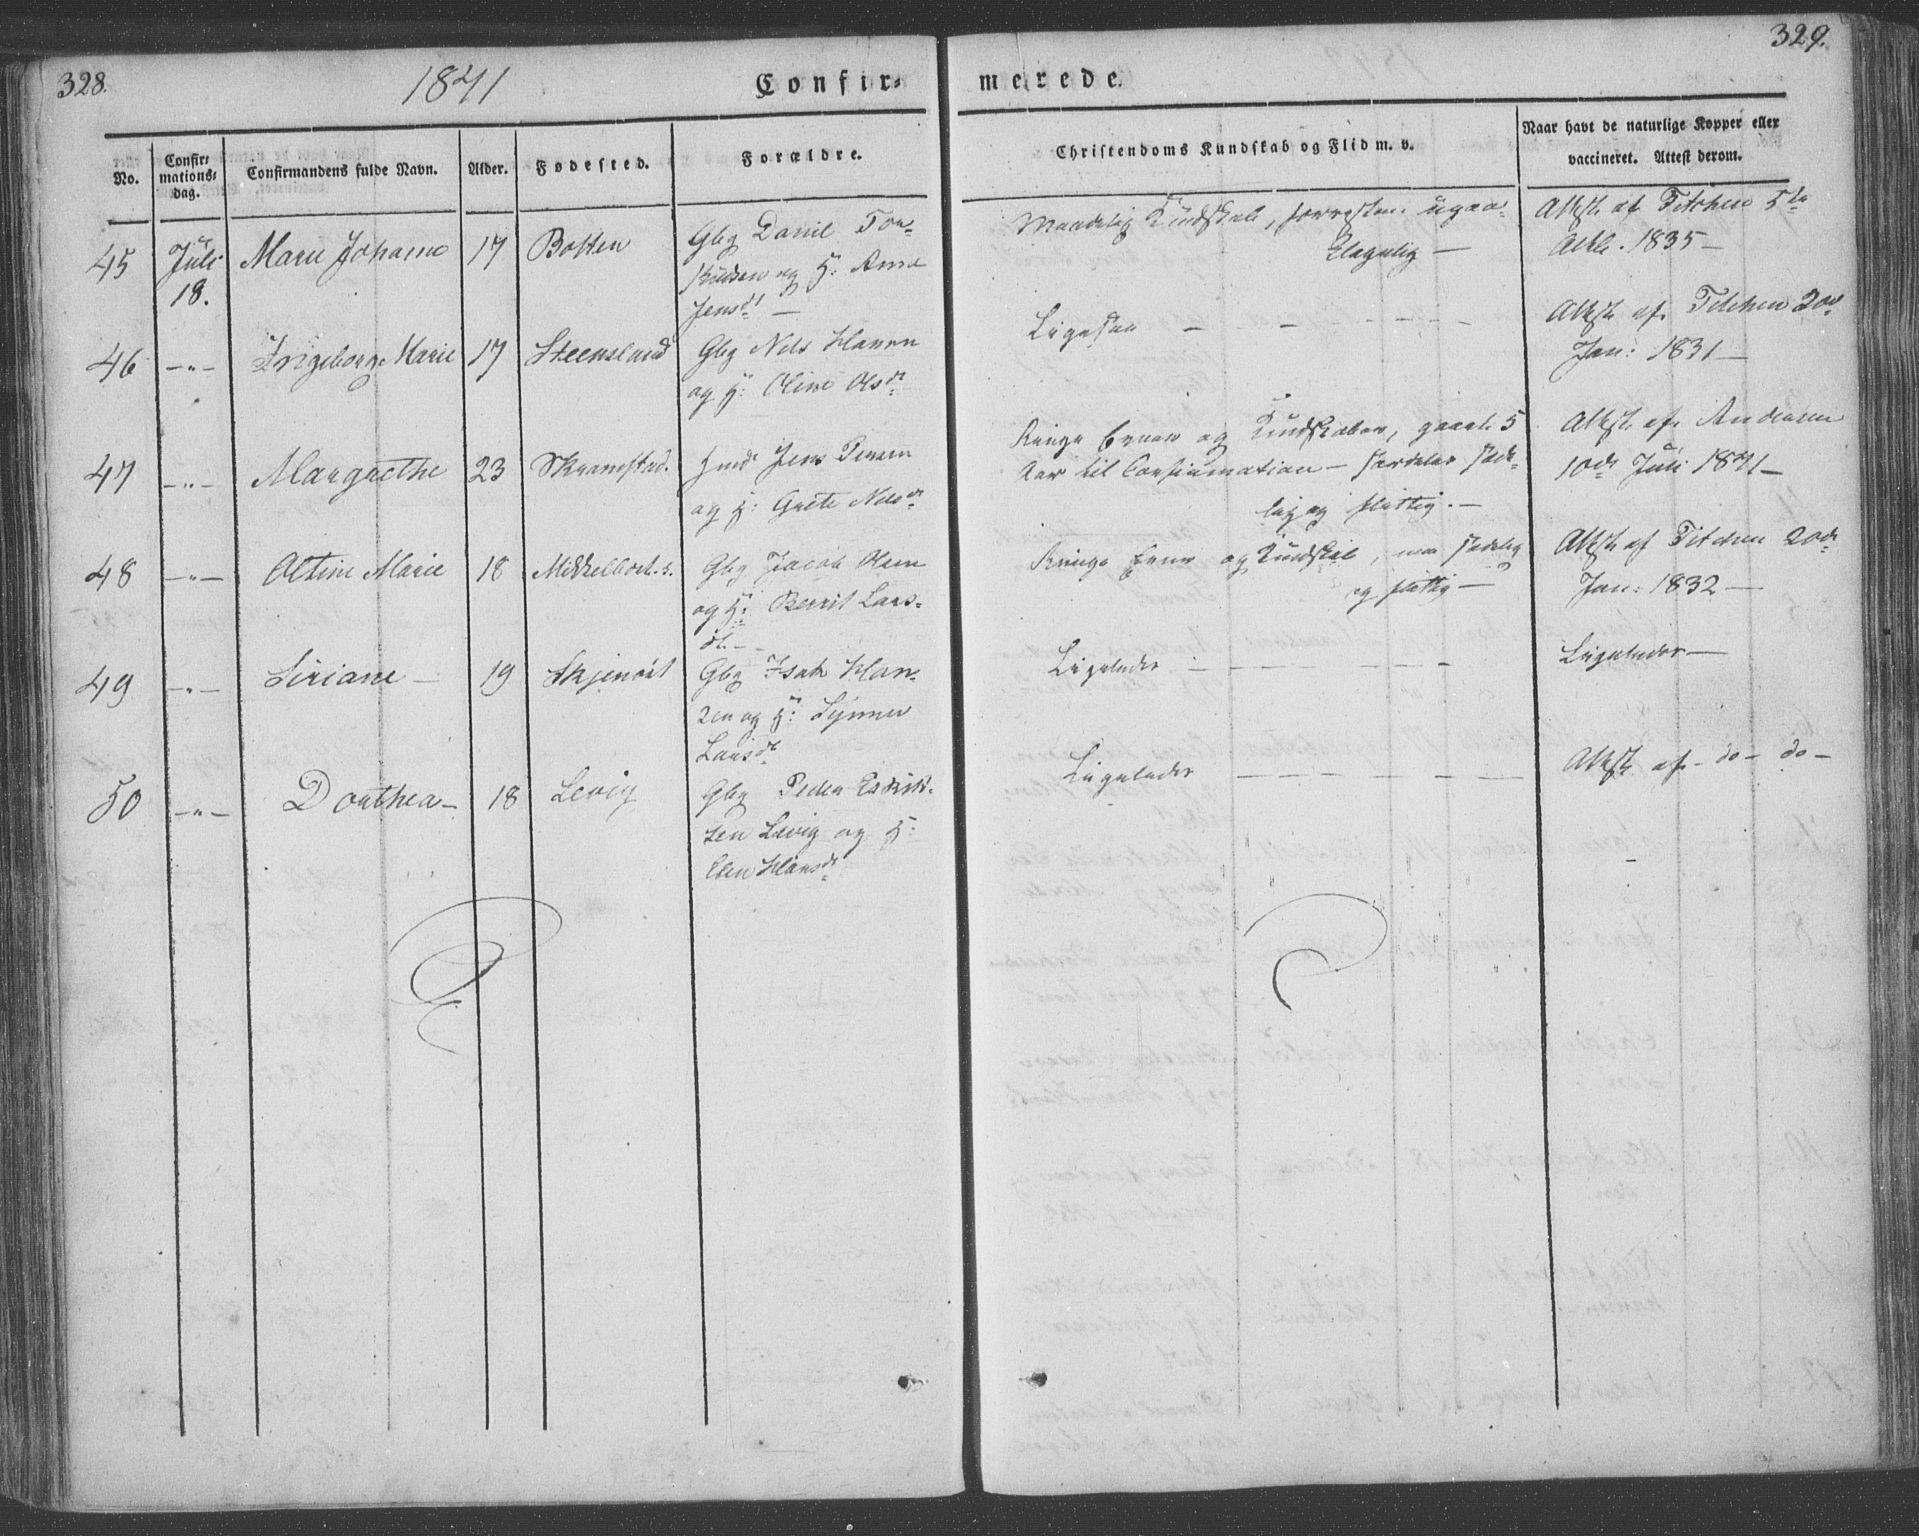 328.
1841
Confir-
merede.
329.
No.
Confir-
mations-
dag.
Confirmandens fulde Navn.
Alder.
Fødested.
Forældre.
Christendoms Kundskab og Flid m. v.
Naar havt de naturlige Kopper eller
vaccineret. Attest derom.
45 Juli 18. Marie Johanne 17 Botten
Gbg Daniel Tor-
og H: Ane
Jensdt —
Maadelig Kundskab,
Attest af Titchen 5te
1835 —
46 —"— Ingeborg Marie 17 Steensland
Gbg Nels Hansen
og H: Oline Olsdt
Ligesaa — — — — —
Attest af Titchen 20de
Jan: 1831 —
47 —"— Margrethe 23 Skramstad.
Jens
og H: Grete Nelsdt
Ringe Evner og Kundskaber, gaaet 5
Aar til Confirmation —
lig og flittig. —
Attest af Andersen
10de Juli 1841 —
48 —"— Oltine Marie 18
Gbg Jacob Olsen
og H: Berrit Lars-
dt. —
Ringe Evner og Kundskab, men sædelig
og flittig —
Attest af Titchen 20de
Jan: 1832 —
49 —"— Siriane — 19
Gbg Isak Han-
sen og H:
Larsdt
Ligeledes — — — —
Ligeledes —
50 —"— Dorthea — 18 Levig
Gbg Peder
sen Levig og H:
Elen Hansdt
Ligeledes — — — —
Attest af - do - do -